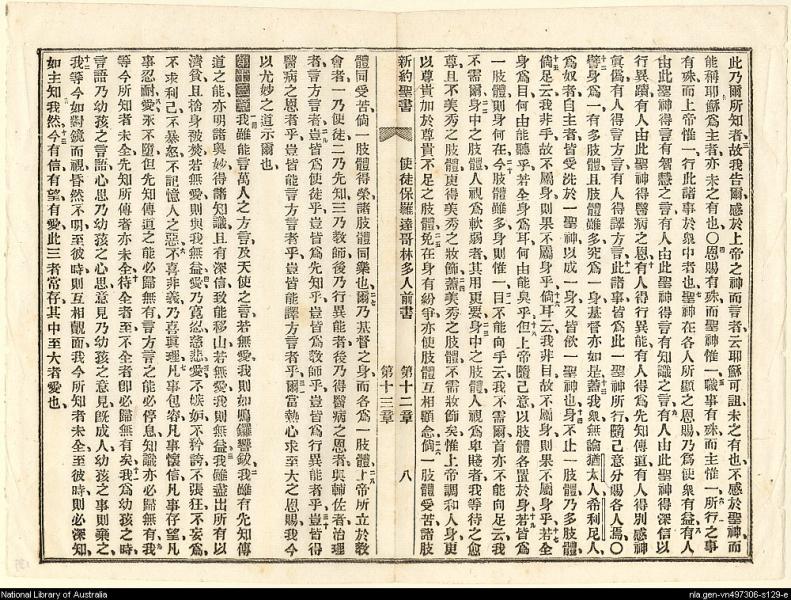 此乃爾所知者故我告爾感於上帝之神而言者云耶穌可詛未之有也不感於聖神而
能稱耶穌爲主者亦未之有也〇恩賜有殊而聖神惟一職事有殊而主惟一所行之事
有殊而上帝惟一行此諸事於衆中者也聖神在各人所顯之恩賜乃爲使衆有益有人
由此聖神得言有智慧之言有人由此聖神得言有知識之言有人由此聖神得深信以
行異蹟有人由此聖神得醫病之恩有人得行異能有人得爲先知傳道有人得別感神
眞僞有人得言方言有人得譯方言此諸事皆爲此一聖神所行隨己意分賜各人焉〇
譬身爲一有多肢體且肢體雖多究爲一身基督亦如是蓋我衆無論猶太人希利尼人
爲奴者自主者皆受洗於一聖神以成一身又皆飲一聖神也身不止一肢體乃多肢體
倘足云我非手故不屬身則果不屬身乎倘耳云我非目故不屬身則果不屬身乎若全
身爲目何由能聽乎若全身爲耳何由能臭乎但上帝隨己意以肢體各置於身若皆爲
一肢體則身何在今肢體雖多身則惟一目不能向手云我不需爾首亦不能向足云我
不需爾身中之肢體人視爲軟弱者其用更要身中之肢體人視爲卑賤者我等待之愈
尊且不美秀之肢體更得美秀之妝飾蓋美秀之肢體不需妝飾矣惟上帝調和人身更
以尊貴加於尊貴不足之肢體免在身有紛爭亦使肢體互相顧念倘一肢體受苦諸肢
新約聖書 使徒保羅達哥林多人前書 第十二章 第十三章 八
體同受苦倘一肢體得榮諸肢體同樂也爾乃基督之身而各爲一肢體上帝所立於教
會者一乃使徒二乃先知三乃教師後乃行異能者後乃得醫病之恩者與輔佐者治理
者言方言者豈皆爲使徒乎豈皆爲先知乎豈皆爲教師乎豈皆爲行異能者乎豈皆得
醫病之恩者乎豈皆能言方言者乎豈皆能譯方言者乎爾當熱心求至大之恩賜我今
以尤妙之道示爾也
第十三章 我雖能言萬人之方言及天使之言若無愛我則如鳴鑼響鈸我雖有先知傳
道之能亦明諸奧妙得諸知識且有深信致能移山若無愛我則無益我雖盡出所有以
濟貧且捨身被焚若無愛則與我無益愛乃寬忍慈悲愛不嫉妒不矜誇不張狂不妄爲
不求利己不暴怒不記憶人之惡不喜非義乃喜眞理凡事包容凡事懷信凡事存望凡
事忍耐愛永不墮但先知傳道之能必歸無有言方言之能必停息知識亦必歸無有我
等今所知者未全先知所傳者亦未全待全者至不全者卽必歸無有矣我爲幼孩之時
言語乃幼孩之言語心思乃幼孩之心思意見乃幼孩之意見旣成人幼孩之事則棄之
我等今如對鏡而視昏然不明至彼時則互相覿面我今所知者未全至彼時則必深知
如主知我然今有信有望有愛此三者常存其中至大者愛也
National Library of Australia
nla.gen-vn497306-s129-e